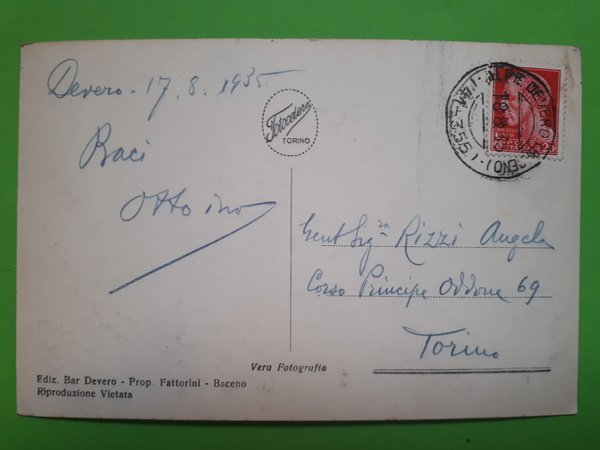 Devero - 17.8.1935
Baci
Ottorino
Fotocelere
TORINO
ALPE DEVERO
Gent Sig.ra Rizzi Angela
Corso Principe Oddone 69
Torino
Vera Fotografia
Ediz. Bar Devero - Prop. Fattorini - Baceno
Riproduzione Vietata